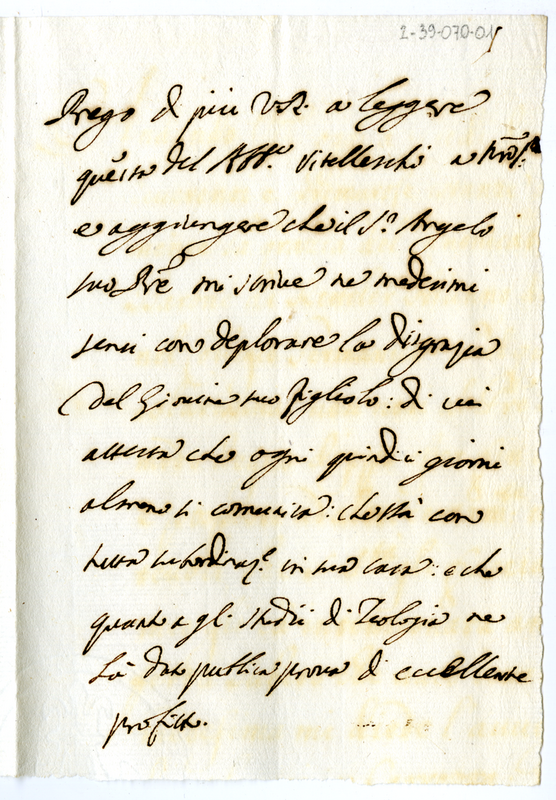 2-39-070-01
Prego di più V.R. a leggere
questa del Abb.e Vitelleschi a
e aggiungere che il S.r Angelo
suo Pre mi scrive ne medesimi
sensi con deplorare la disgrazia
del Giovine suo figliolo: di cui
attesta che ogni quindici giorni
almeno si comunica: che stà con
tutta subordinaz.e in sua casa: e che
quanto a gli studii di Teologia ne
hà dato publica prova di eccellente
profitto.